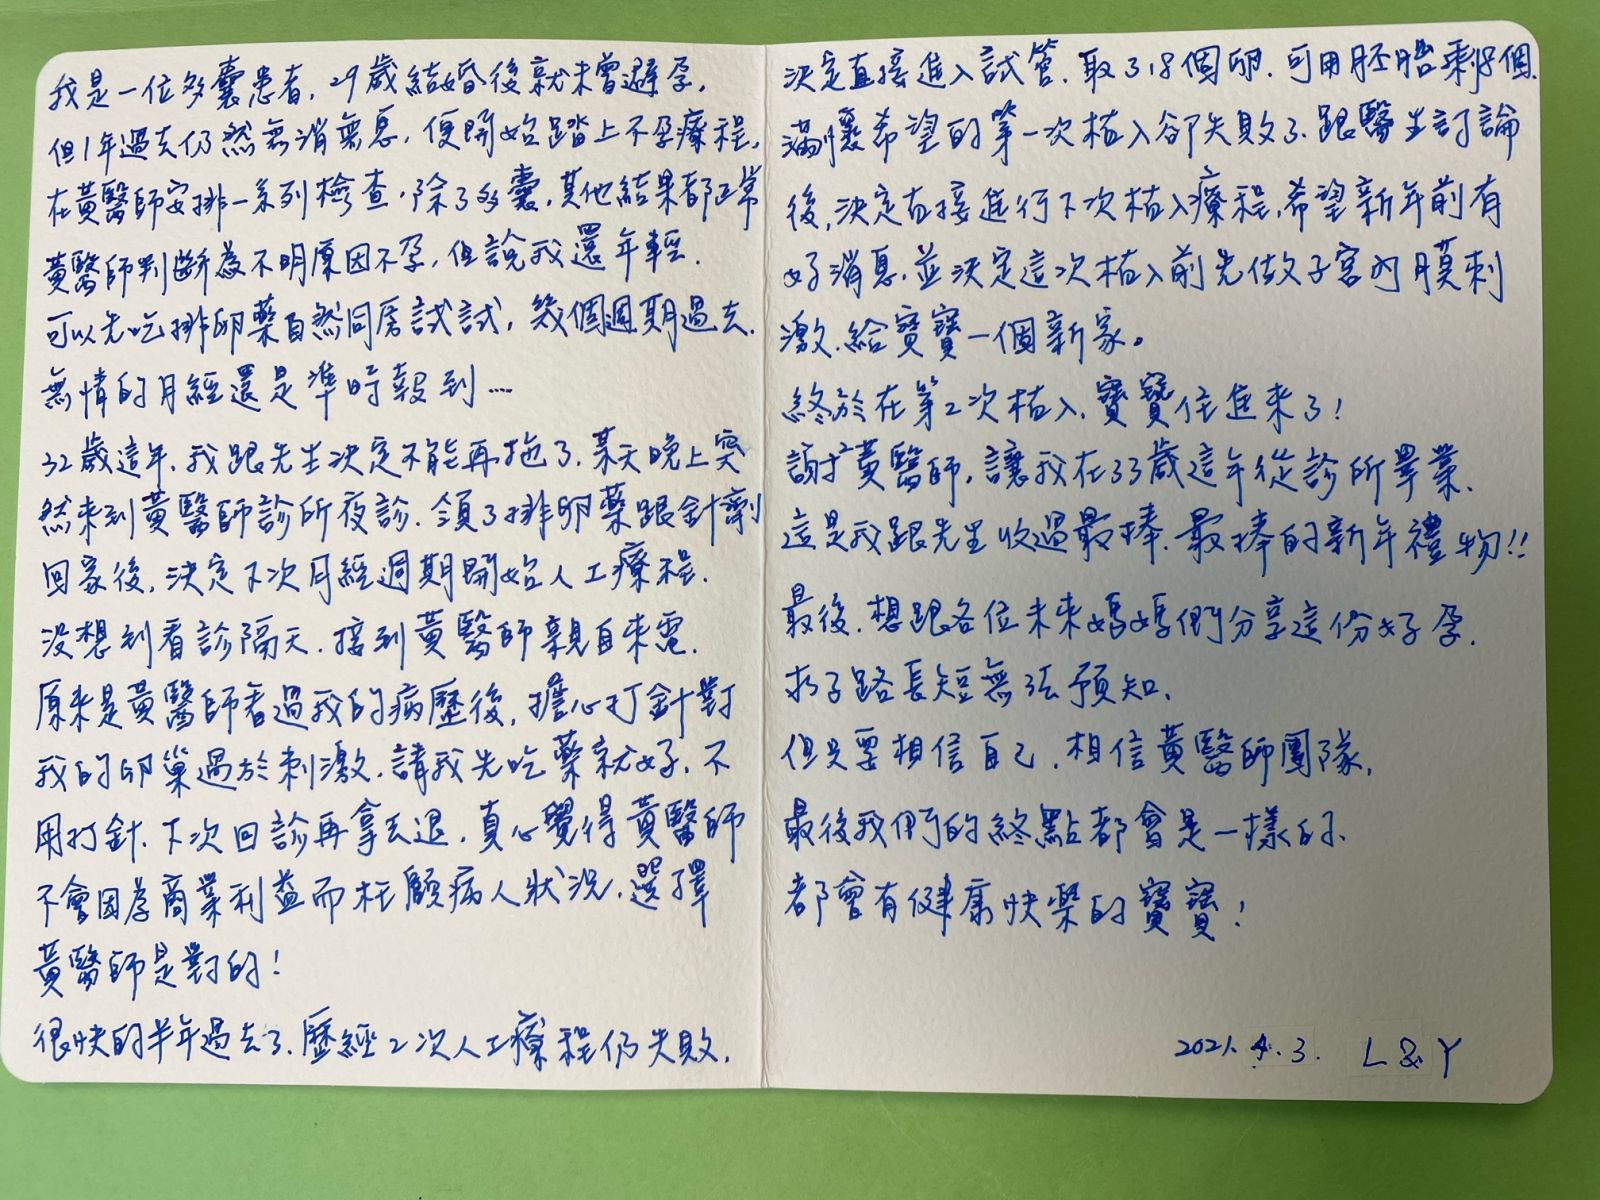 我是一位多囊患者，29歲結婚後就未曾避孕，
但1年過去仍然無消無息，便開始踏上不孕療程，
在黃醫師安排一系列檢查，除了多囊，其他結果都正常
黃醫師判斷為不明原因不孕，但說我還年輕．
可以先吃排卵藥自然同房試試，幾個週期過去．
無情的月經還是準時報到…
32歲這年，我跟先生決定不能再拖了．某天晚上突
然來到黃醫師診所夜診．領了排卵藥跟針劑
回家後，決定下次月經週期開始人工療程．
沒想到看診隔天．接到黃醫師親自來電．
原來是黃醫師看過我的病歷後，擔心打針對
我的卵巢過於刺激．請我先吃藥就好，不
用打針．下次回診再拿去退．真心覺得黃醫師
不會因為商業利益而枉顧病人狀況．選擇
黃醫師是對的！
很快的半年過去了．歷經2次人工療程仍失敗．
決定直接進入試管．取了18個卵．可用胚胎剩8個．
滿懷希望的第一次植入卻失敗了．跟醫生討論
後，決定直接進行下次植入療程，希望新年前有
好消息．並決定這次植入前先做子宮內膜刺
激．給寶寶一個新家。
終於在第2次植入．寶寶住進來了！
謝謝黃醫師，讓我在33歲這年從診所畢業．
這是我跟先生收過最棒．最棒的新年禮物！！
最後．想跟各位未來媽媽們分享這份好孕．
求子路長短無法預知．
但只要相信自己．相信黃醫師團隊．
最後我們的終點都會是一樣的．
都會有健康快樂的寶寶！
2021. 4. 3. L & Y